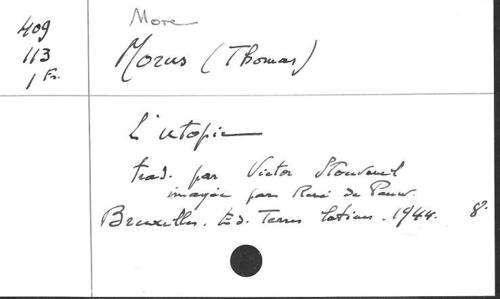 More
409
113
1 Fr.
Morus (Thomas)
L'utopie
trad. par Victor Stouvenel
imagée par René de Pauw.
Bruxelles. Ed. Terres latines. 1944. 8°.